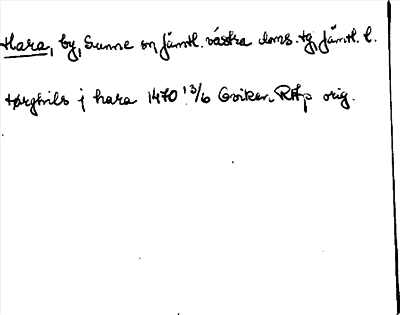 Hara, by, Sunne sn, Jämtl. västra doms. tg, Jämtl. l.
torghils j hara 1470 13/6 Oviken RAp orig.